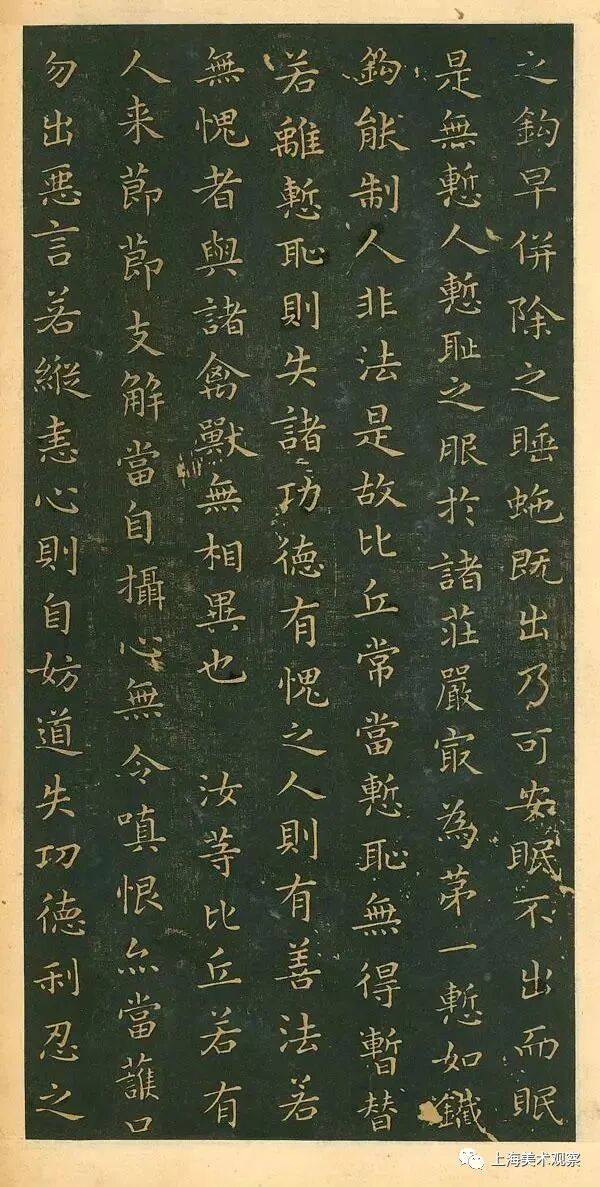 之鈎早併除之睡虵既出乃可安眠不出而眠
是無慙人慙耻之服於諸莊嚴冣為苐一慙如鐵
鈎能制人非法是故比丘常當慙恥無得暫替
若離慙恥則失諸功德有愧之人則有善法若
無愧者與諸禽獸無相異也 汝等比丘若有
人来節節支解當自攝心無令嗔恨亦當護口
勿出惡言若縱恚心則自妨道失功德利忍之
上海美术观察